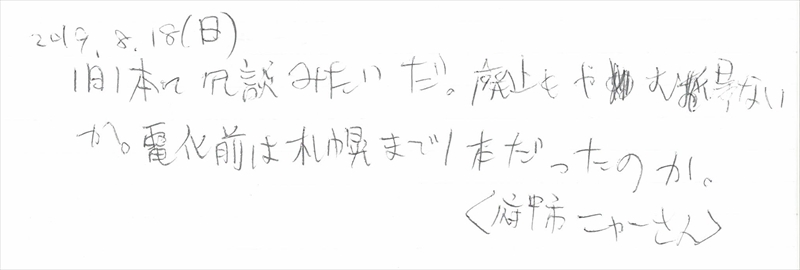 2019.8.18(日)
1日1本って冗談みたいだ。廃止もやむ得ない
か。電化前は札幌まで1本だったのか。
<府中市 ニャーさん>